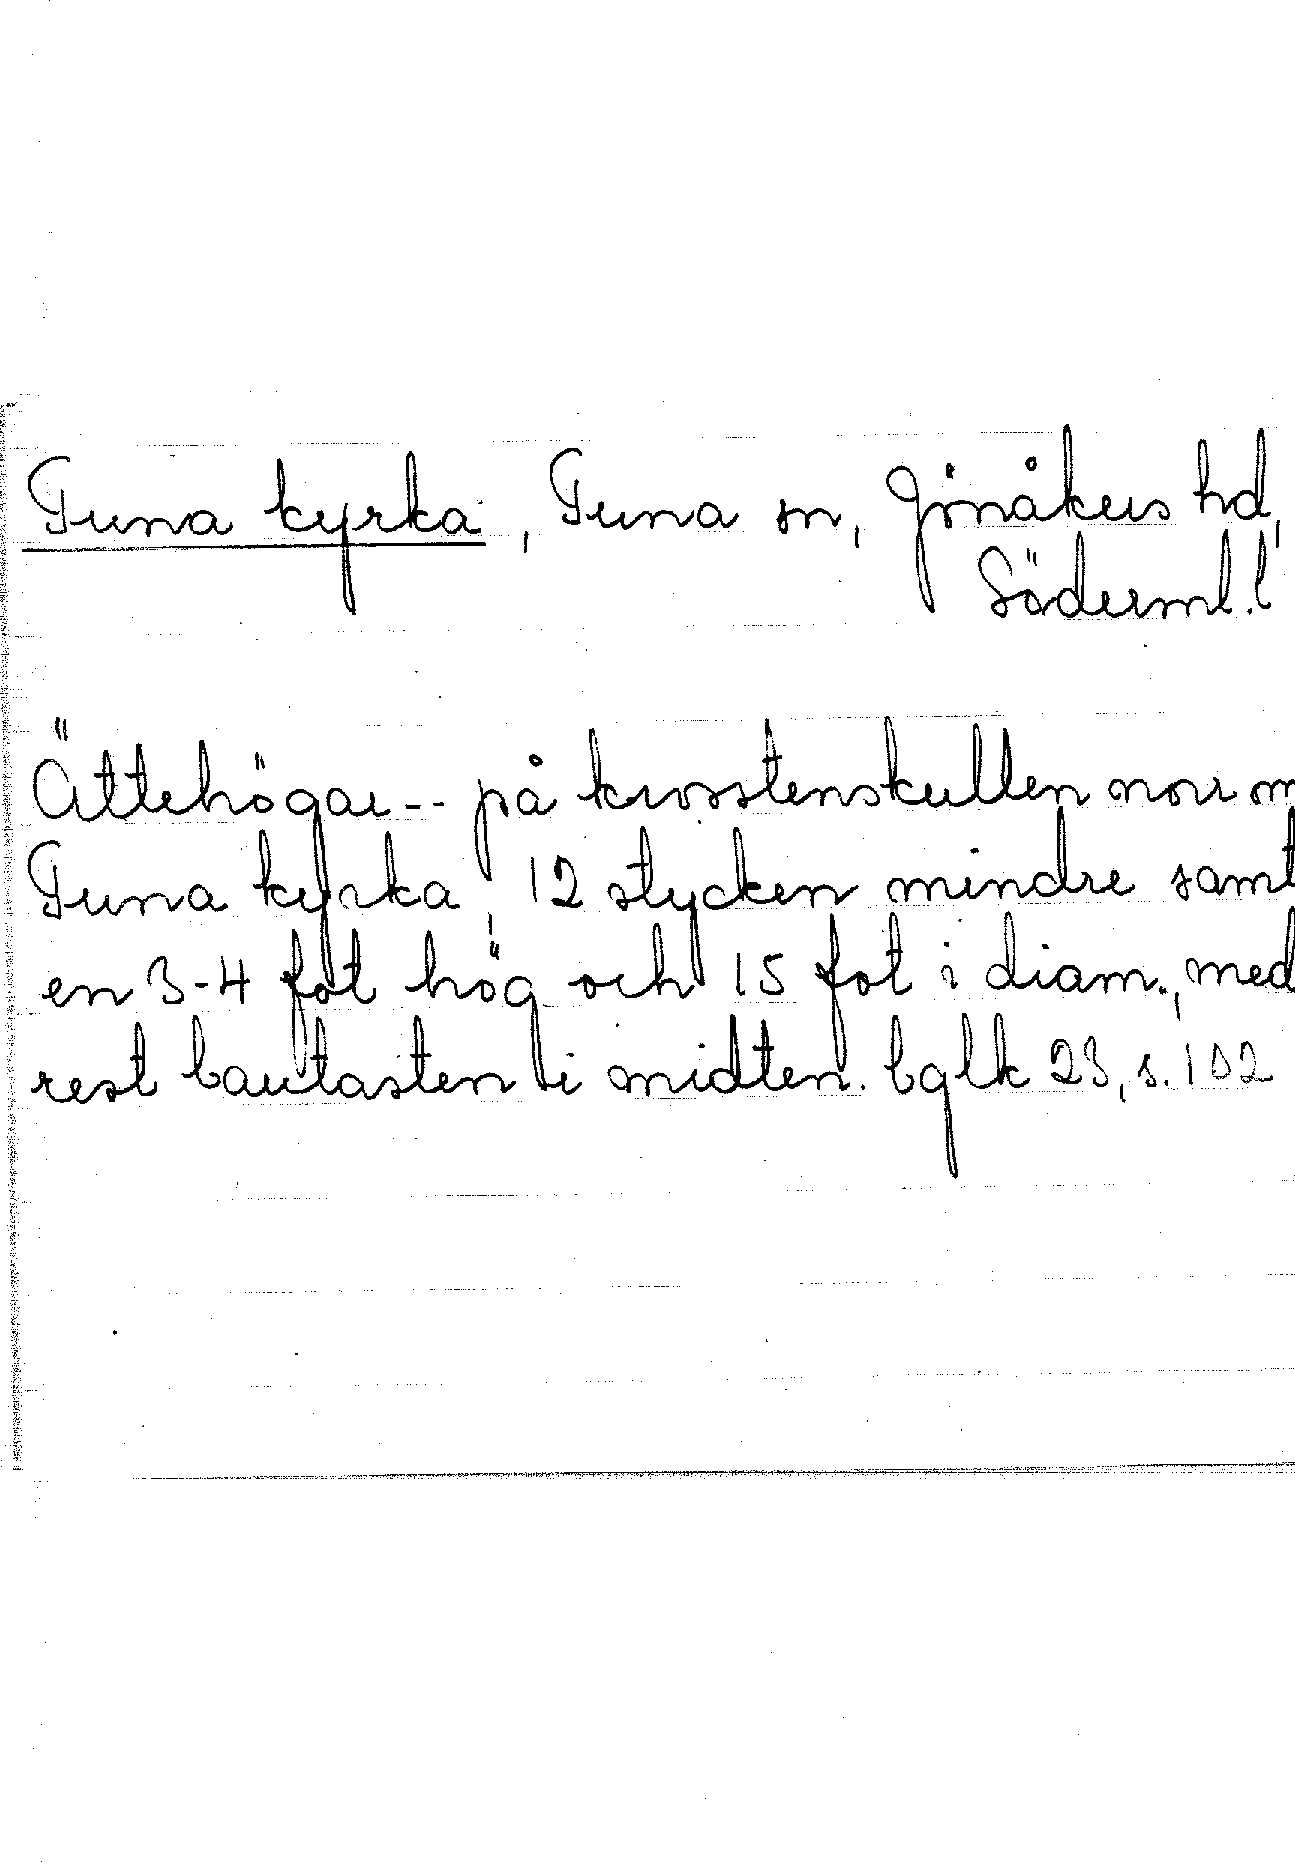 Tuna kyrka, Tuna sn, Jönåkers hd,
Söderml. l
Ättehögar-- på krosstenskullen norr om
Tuna kyrka, 12 stycken mindre samt
en 3-4 fot hög och 15 fot i diam., med
rest bautasten i midten. bglk 23, s. 102